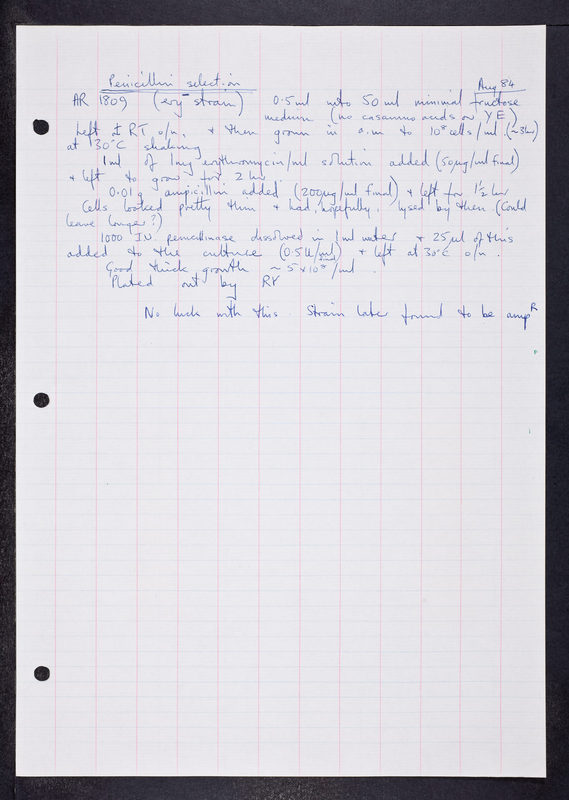 Penicillin selection
Aug 84
AR 1809 (ery⁻ strain) 0.5ml into 50ml minimal fructose
medium (no casamino acids or YE)
Left at RT o/n. & then grown in a.m to 10⁸ cells/ml (~3hr)
at 30°C shaking
1ml of 1mg erythromycin/ml solution added (50μg/ml final)
& left to grow for 2 hr.
0.01g ampicillin added (200μg/ml final) & left for 1½ hr
Cells looked pretty thin & had, hopefully, lysed by then (Could
leave longer?)
1000 IN. penicillinase dissolved in 1ml water & 25μl of this
added to the culture (0.5U/ml final) & left at 30°C o/n.
Good thick growth ~ 5x10⁸/ml.
Plated out by RV
No luck with this. Strain later found to be ampᴿ